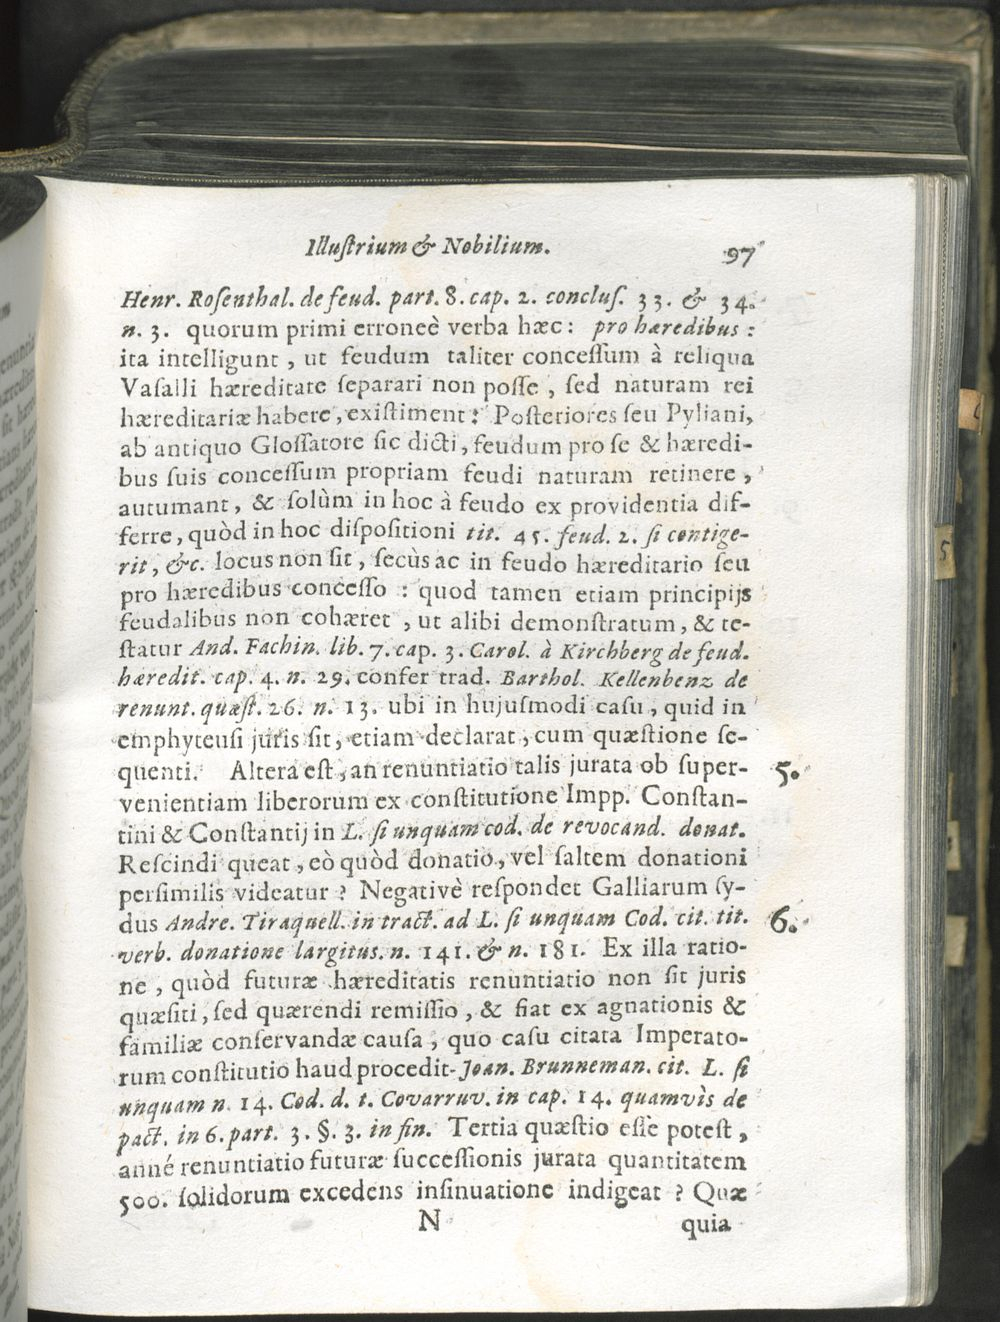 Illuſtrium & Nobilium. 97
Henr. Roſenthal. de feud. part. 8. cap. 2. concluſ. 33. & 34.
n. 3. quorum primi erroneè verba hæc: pro hæredibus:
ita intelligunt, ut feudum taliter conceſſum à reliqua
Vaſalli hæreditate ſeparari non poſſe, ſed naturam rei
hæreditariæ habere, exiſtiment: Poſteriores ſeu Pyliani,
ab antiquo Gloſſatore ſic dicti, feudum pro ſe & hæredi-
bus ſuis conceſſum propriam feudi naturam retinere,
autumant, & ſolùm in hoc à feudo ex providentia dif-
ferre, quòd in hoc diſpoſitioni tit. 45. feud. 2. ſi contige-
rit, &c. locus non ſit, ſecùs ac in feudo hæreditario ſeu
pro hæredibus conceſſo: quod tamen etiam principijs
feudalibus non cohæret, ut alibi demonſtratum, & te-
ſtatur And. Fachin. lib. 7. cap. 3. Carol. à Kirchberg de feud.
hæredit. cap. 4. n. 29. confer trad. Barthol. Kellenbenz de
renunt. quæſt. 26. n. 13. ubi in hujuſmodi caſu, quid in
emphyteuſi juris ſit, etiam declarat, cum quæſtione ſe-
quenti. Altera eſt, an renuntiatio talis jurata ob ſuper- 5.
venientiam liberorum ex conſtitutione Impp. Conſtan-
tini & Conſtantij in L. ſi unquam cod. de revocand. donat.
Reſcindi queat, eò quòd donatio, vel ſaltem donationi
perſimilis videatur? Negativè reſpondet Galliarum ſy-
dus Andre. Tiraquell. in tract. ad L. ſi unquam Cod. cit. tit. 6.
verb. donatione largitus. n. 141. & n. 181. Ex illa ratio-
ne, quòd futuræ hæreditatis renuntiatio non ſit juris
quæſiti, ſed quærendi remiſſio, & fiat ex agnationis &
familiæ conſervandæ cauſa, quo caſu citata Imperato-
rum conſtitutio haud procedit. Joan. Brunneman. cit. L. ſi
unquam n. 14. Cod. d. t. Covarruv. in cap. 14. quamvìs de
pact. in 6. part. 3. §. 3. in fin. Tertia quæſtio eſſe poteſt,
anné renuntiatio futuræ ſucceſſionis jurata quantitatem
500. ſolidorum excedens inſinuatione indigeat? Quæ
N quia